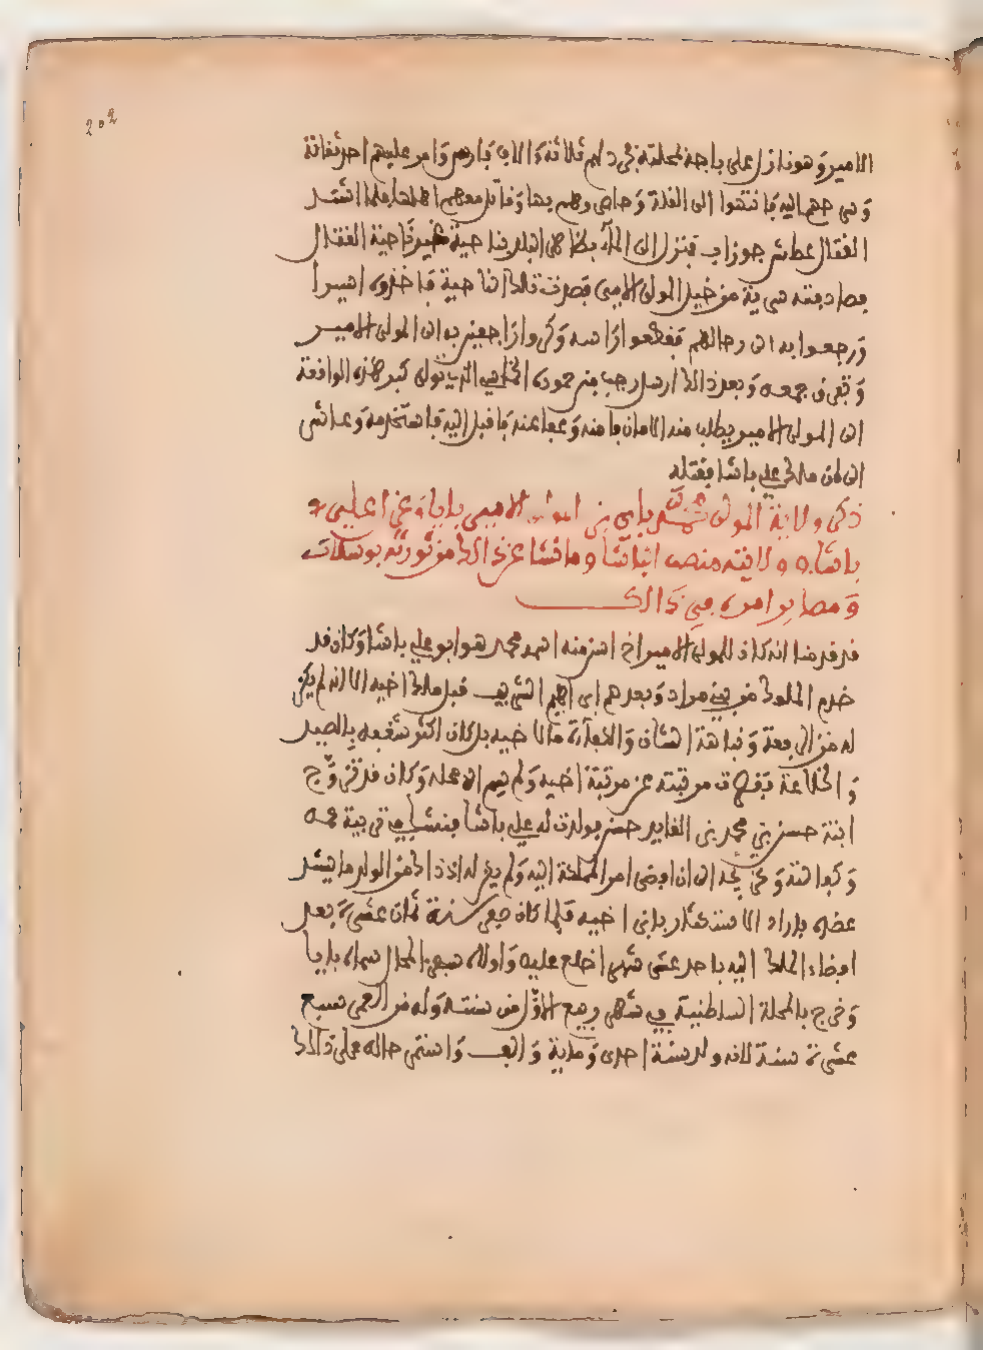 202
الامير وهو نازل على باجة بمحلته في دلهم ثلاثة ءالاف فارس وامر عليهم احد ثقاته
وسرحهم اليه فانتهوا الى القلعة وحاصروهم بها وقاتل معهم اهلها فلما اشتد
القتال عطش جوزاب فنزل الى الماء بظاهر البلد ناحية غير ناحية القتال
فصادفته سرية من خيل المولى الامير قصدت تلك الناحية فاخذوه اسيرا
ورجعوا به الى رحالهم فقطعوا راسه وكروا راجعين به الى المولى الامير
وتفرق جمعه وبعد ذالك ارسل رجب بن حمودة الذي تولى كبر هذه الواقعة
الى المولى الامير يطلب منه الامان فامنه وعفا عنه فاقبل اليه فاستخدمه وعاش
الى ان ملك علي باشا فقتله
ذكر ولاية المولى محمد باي بن المولى الامير بايا وعزا علي
باشا ه وولايته منصب الباشا وما نشا عن ذالك من ثورته بوسلات
ومصاير امره في ذالك
قد قدمنا انه كان للمولى الامير اخ اسن منه اسمه محمد هو ابو علي باشا وكان قد
خدم الملوك من بني مراد وبعدهم ابراهيم الشريف قبل ملك اخيه الا انه لم يكن
له من الرفعة ونباهة الشان والكفاءة ما لاخيه بل كان اكثر شغفه بالصيد
والخلاعة فتقهقرت مرتبته عن مرتبة اخيه ولم يسم الى عمله وكان قد تزوج
ابنة حسن بن محمد بن القايد حسن فولدت له علي باشا فنشا في تربية عمه
وكفالته وعز نجله الى ان افضى امر المملكة اليه ولم يكن له اذ ذاك من الولد ما يشد
عضده فاراد الاستكثار بابن اخيه فلما كان في سنة ثمان عشرة بعد
افضاء الملك اليه باحد عشر شهرا خلع عليه واولاه سفر المحال وسماه بايا
وخرج بالمحلة السلطنية في شهر ربيع الاول من سنته وله من العمر سبع
عشرة سنة لانه ولد سنة احدى وماية والف واستمر حاله على ذالك